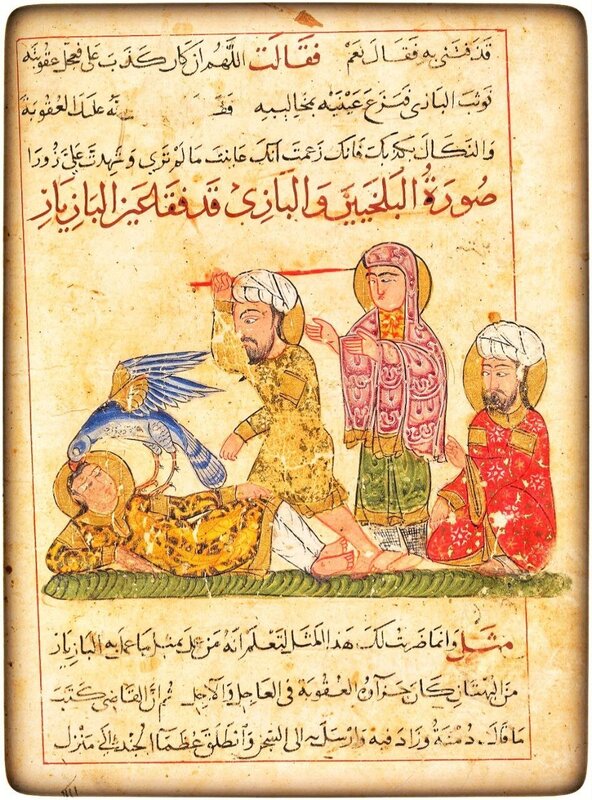 قد قذفتنى به فقال نعم فقالت اللهم ان كان كذب على فعجل عقوبته
فوثب البازى فنزع عينيه بمخاليبه فقالت انه عجل العقوبة
والنكال بكذبك فانك زعمت انك عاينت ما لم ترى وشهدت على زورا
صورة البلخيين والبازى قد فقا عين البازيار
مثل وانما ضربت لك هدا المثل لتعلم انه من عمل بمثل ما عمل به البازيار
من البهتان كان جزاؤه العقوبة فى العاجل والاجل ثم ان القاضى كتب
ما قال دمنة وزاد فيه وارسل به الى السجن وانطلق عظما الجند الى منزل